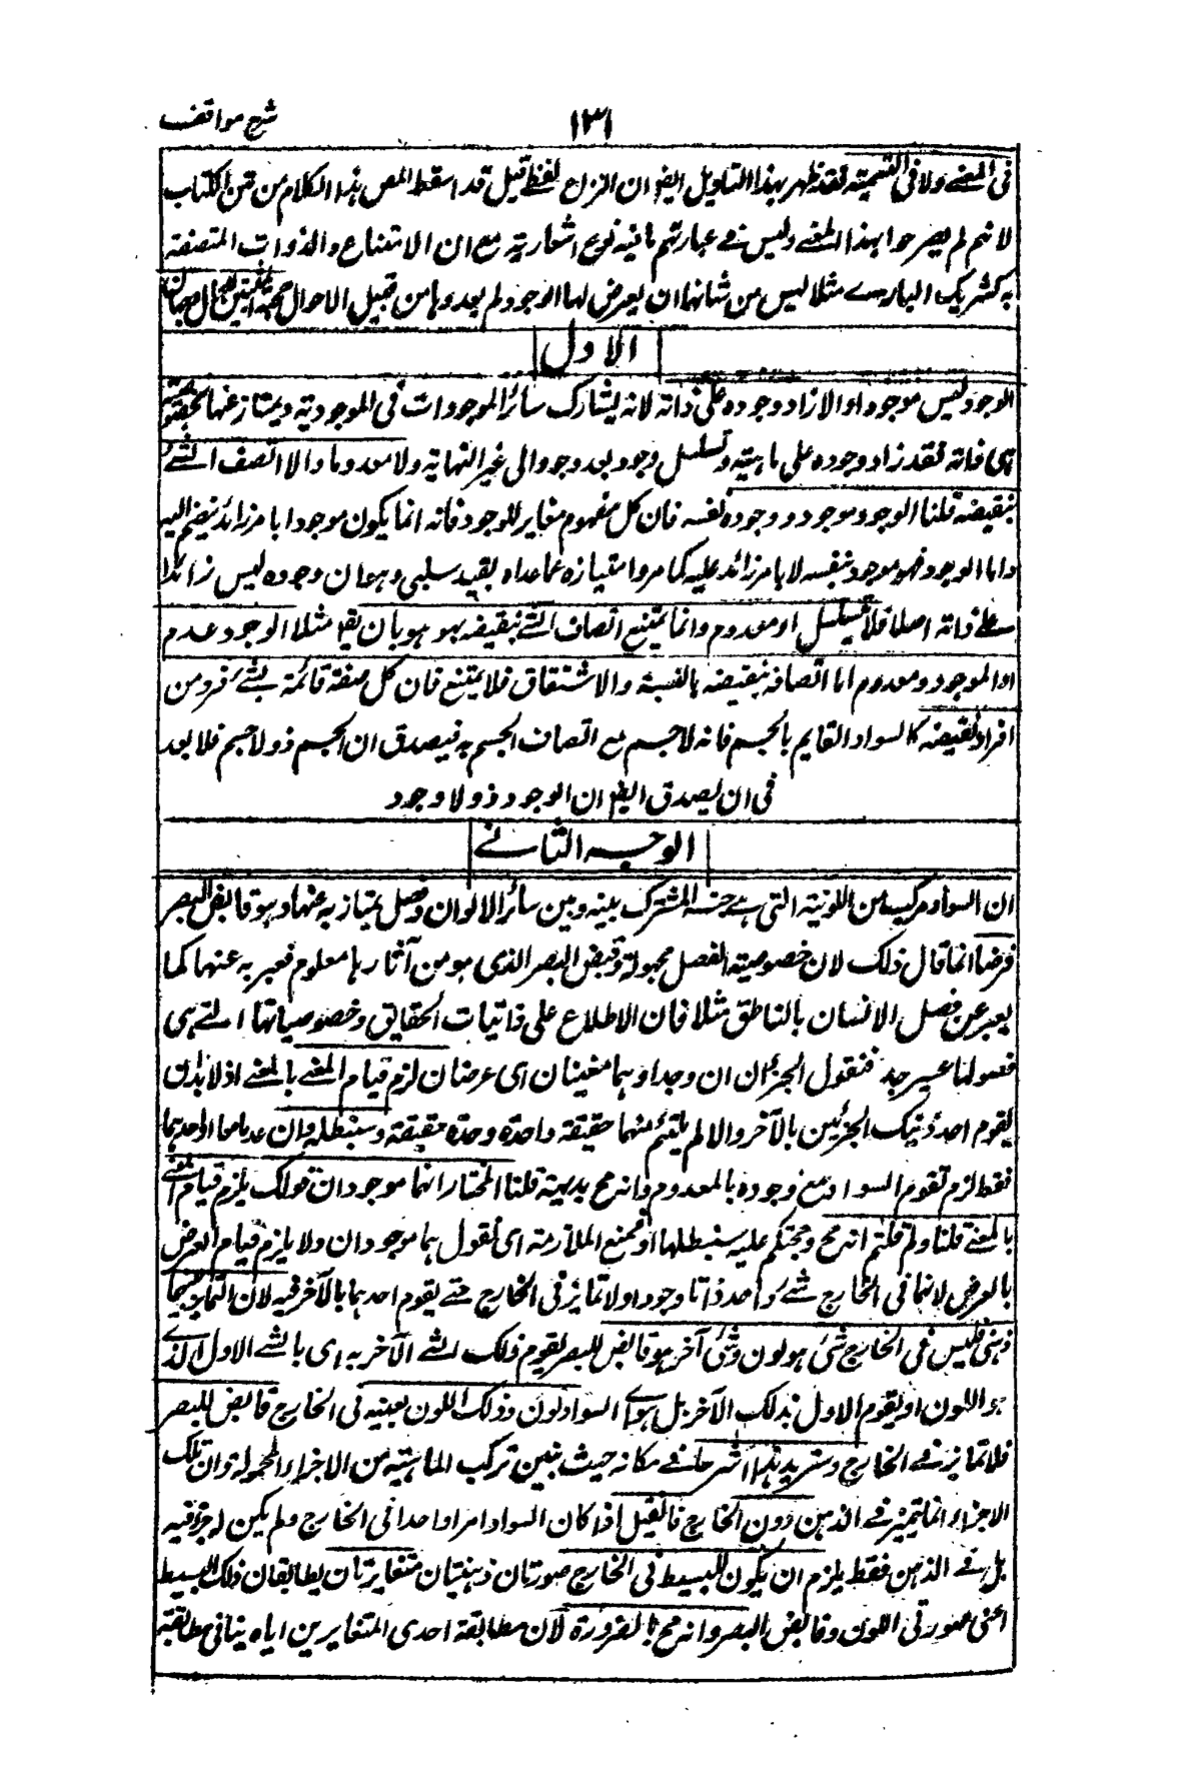 شرح مواقف
١٣١
فى المعنے ولا فى التسمية فقد ظهر بهذا التاويل ايضا ان النزاع لفظے قيل قد اسقط المص هذا الكلام من متن الكتاب
لانهم لم يصرحوا بهذا المعنے وليس فے عبارتهم ما فيه نوع اشعار به مع ان الامتناع والذوات المتصفة
به كشريك البارے مثلا ليس من شانها ان يعرض لها الوجود ولم يعدوها من قبيل الاحوال حجة المثبتين للحال وجهان
الاول
الوجود ليس موجودا والا زاد وجوده على ذاته لانه يشارك سائر الموجودات فى الموجودية ويمتاز عنها بحقيقته
التى هى ذاته فقد زاد وجوده على ماهيته وتسلسل وجود بعد وجود الى غير النهاية ولا معدوما والا اتصف الشئے
بنقيضه قلنا الوجود موجود ووجوده نفسه فان كل مفهوم مغاير للوجود فانه انما يكون موجودا بامر زائد ينضم اليه
واما الوجود فهو موجود بنفسه لا بامر زائد عليه كما مر وامتيازه عما عداه بقيد سلبى وهو ان وجوده ليس زائدا
علے ذاته اصلا فلا يتسلسل او معدوم وانما يمتنع اتصاف الشئے بنقيضه بهو هو بان يقا مثلا الوجود عدم
او الموجود معدوم اما اتصافه بنقيضه بالنسبة والاشتقاق فلا يمتنع فان كل صفة قائمة بشئے فرد من
افراد نقيضه كالسواد القايم بالجسم فانه لا جسم مع اتصاف الجسم به فيصدق ان الجسم ذو لا جسم فلا بعد
فى ان يصدق ايضا ان الوجود ذو لا وجود
الوجه الثانے
ان السواد مركب من اللونية التى هے جنسه المشترك بينه وبين سائر الالوان وفصل يمتاز به عنها وهو قابض البصر
فرضا انما قال ذلك لان خصوصية الفصل مجهولة وقبض البصر الذى هو من آثارها معلوم فعبر به عنها كما
يعبر عن فصل الانسان بالناطق مثلا فان الاطلاع على ذاتيات الحقايق وخصوصياتها التے هى
فصولها عسير جدا فنقول الجزءان ان وجدا وهما معنيان اى عرضان لزم قيام المعنے بالمعنے اذ لا بد ان
يقوم احد ذينك الجزئين بالآخر والا لم يلتئم منهما حقيقة واحدة وحدة حقيقية وسنبطله وان عدما معا او احدهما
فقط لزم تقوم السواد مع وجوده بالمعدوم وانه مح بديهة قلنا المختار انهما موجودان قولك يلزم قيام المعنے
بالمعنے قلنا ولم قلتم انه مح وحجتكم عليه سنبطلها او نمنع الملازمة اى نقول هما موجودان ولا يلزم قيام العرض
بالعرض لانهما فى الخارج شئے واحد ذاتا ووجودا ولا تمايز فى الخارج حتے يقوم احدهما بالآخر فيه لان التمايز بينهما
ذهنى فليس فى الخارج شئ هو لون وشئ آخر هو قابض للبصر يقوم ذلك الشئے الآخر به اى بالشئے الاول الذے
هو اللون او يقوم الاول بذلك الآخر بل هو اے السواد لون وذلك اللون بعينه فى الخارج قابض للبصر
فلا تمايز فے الخارج وسنزيد هذا شرحا فے مكانه حيث نبين تركب الماهية من الاجزاء المحمولة وان تلك
الاجزاء انما تتميز فے الذهن دون الخارج فان قيل اذا كان السواد امرا واحدا فى الخارج ولم يكن له جزء فيه
بل فے الذهن فقط يلزم ان يكون للبسيط فى الخارج صورتان ذهنيتان متغايرتان يطابقان ذلك البسيط
اعنى صورتى اللون وقابض البصر وانه مح بالضرورة لان مطابقة احدى المتغايرين اياه ينافى مطابقة